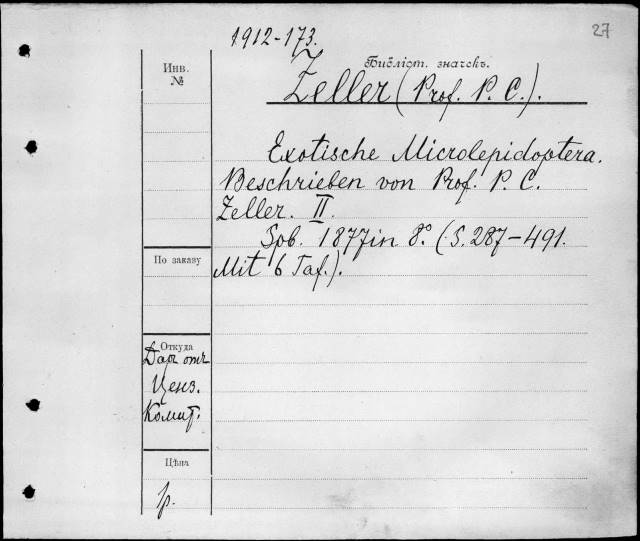 27
1912-173.
Инв. №
Библіот. значекъ.
Zeller (Prof. P. C.).
Exotische Microlepidoptera.
Beschrieben von Prof. P. C.
Zeller. II.
Spb. 1877 in 8° (S. 287-491.
Mit 6 Taf.).
По заказу
Откуда
Даръ отъ
Ценз.
Комит.
Цѣна
р.